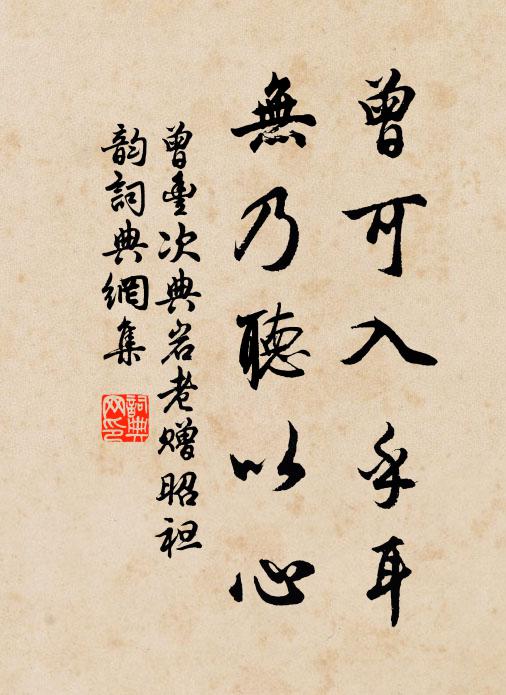 曾可入乎耳
無乃聽以心
曾豐次典岩老贈昭祖
韵詞典網集
詞典網印